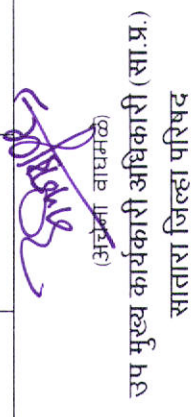 (अर्चना वाघमळे)
उप मुख्य कार्यकारी अधिकारी (सा.प्र.)
सातारा जिल्हा परिषद